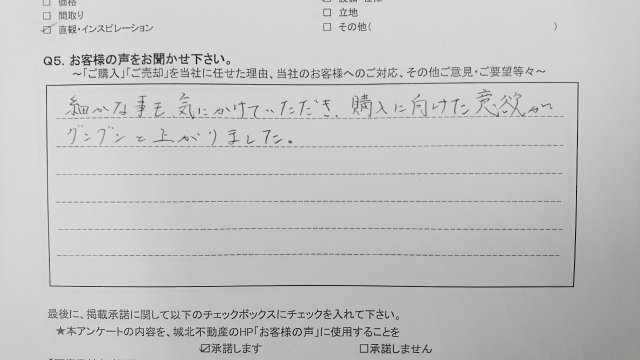 □ 価格
□ 間取り
☑ 直観・インスピレーション
□ 立地
□ その他(　　　　　　)
Q5. お客様の声をお聞かせ下さい。
～「ご購入」「ご売却」を当社に任せた理由、当社のお客様へのご対応、その他ご意見・ご要望等々～
細かな事も気にかけていただき、購入に向けた意欲が
グングンと上がりました。
最後に、掲載承諾に関して以下のチェックボックスにチェックを入れて下さい。
★本アンケートの内容を、城北不動産のHP「お客様の声」に使用することを
☑承諾します　□承諾しません